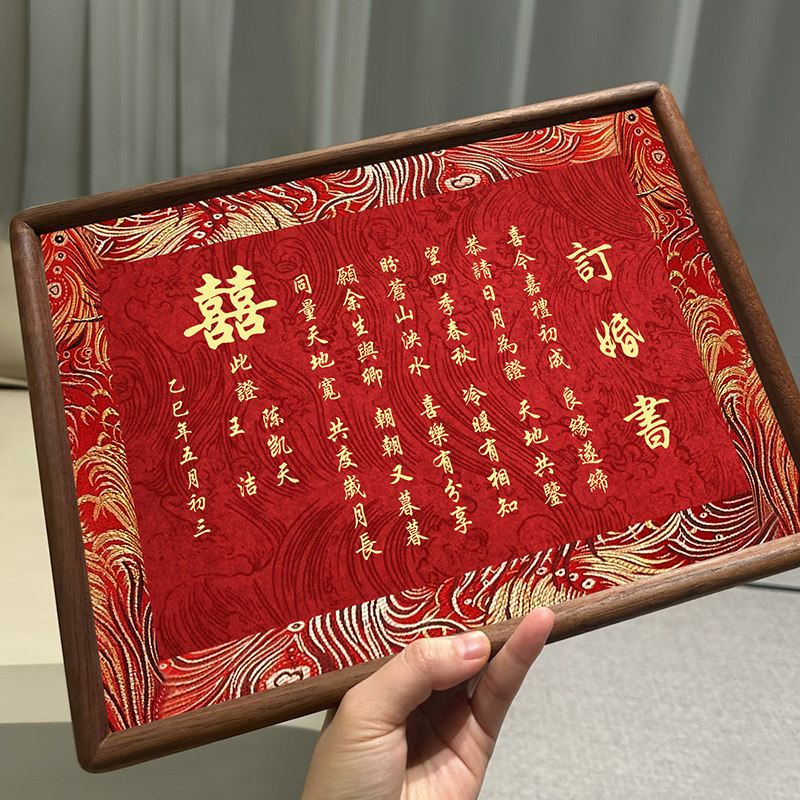 訂婚書
喜今嘉禮初成 良緣遂締
恭請日月為證 天地共鑒
望四季春秋 冷暖有相知
盼蒼山泱水 喜樂有分享
願余生與卿 朝朝又暮暮
同量天地寬 共度歲月長
囍
此證 陳凱天
王 洁
乙巳年五月初三